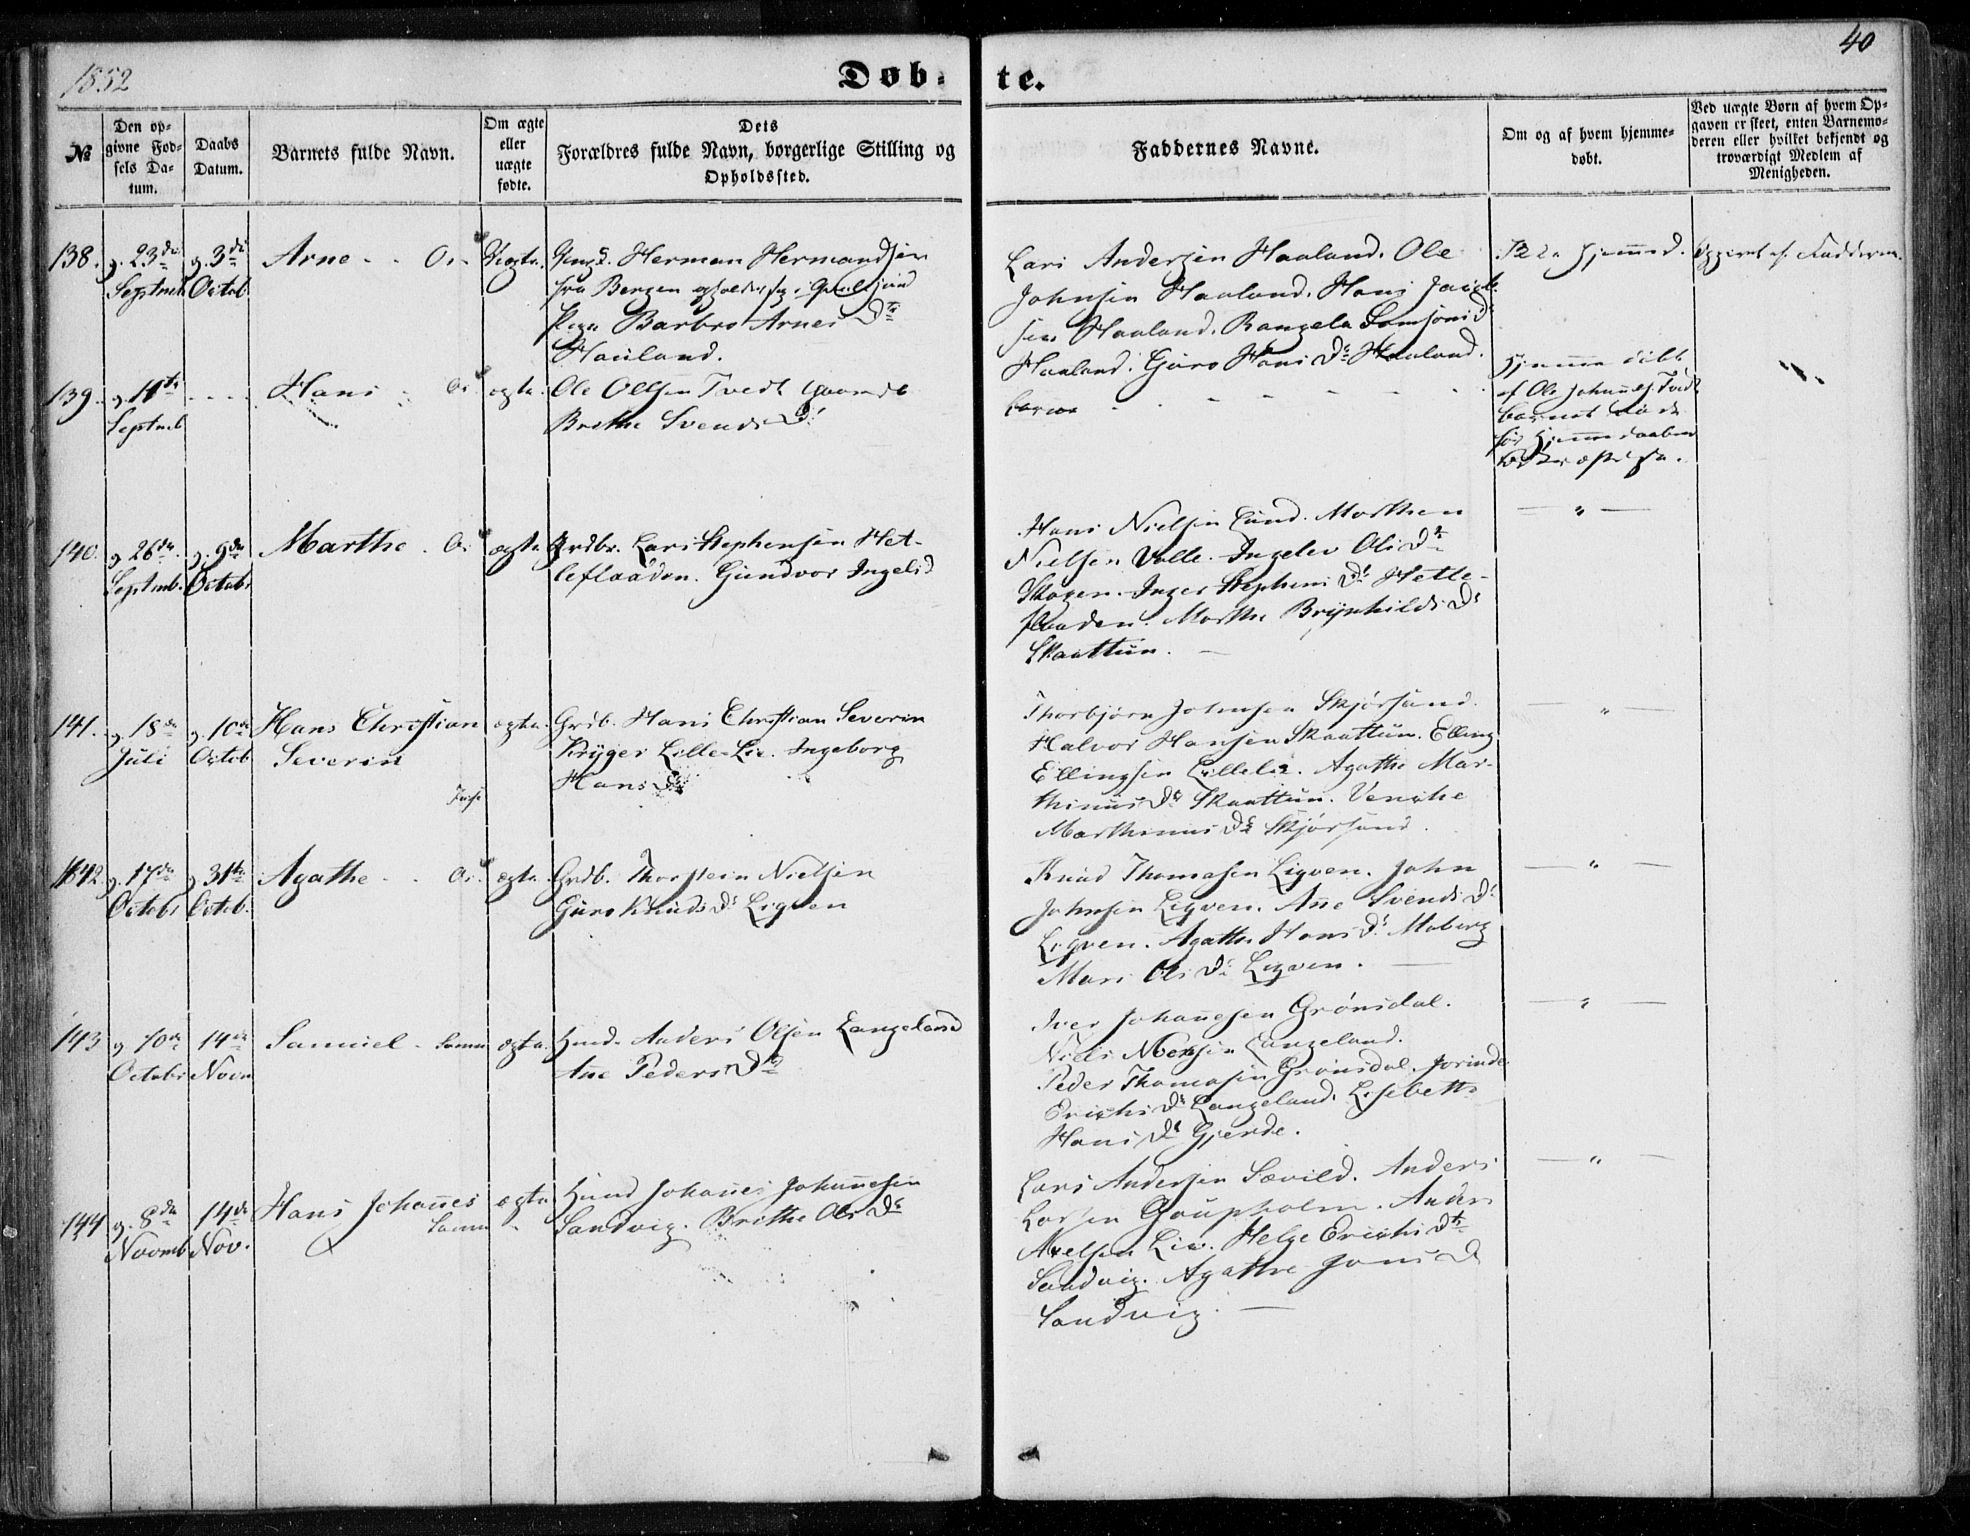 1852
Døb-
te.
40
№
Den op-
givne Fød-
sels Da-
tum.
Daabs
Datum.
Barnets fulde Navn.
Om ægte
eller
uægte
fødte.
Dets
Forældres fulde Navn, borgerlige Stilling og
Opholdssted.
Faddernes Navne.
Om og af hvem hjemme-
døbt.
Ved uægte Børn af hvem Op-
gaven er skeet, enten Barnemo-
deren eller hvilket bekjendt og
troværdigt Medlem af
Menigheden.
138.
23de
Septmb
3die
Octob
Arne
Os
Uægte.
Herman Hermandsen
fra Bergen
Pige Barbro Arnes Dtr
Hauland.
Lars Andersen Haaland. Ole
Johnsen Haaland. Hans Jacob-
sen Haaland. Rangela Samsons D
Haaland. Guro Hans Dr Haaland.
139.
11te
Septmb
Hans
Os
ægte.
Ole Olsen Tvedt
Brithe Svends Dr
Hjemme døbt
af Ole Johannes. Tvedt
barnet døde
før Hjemmedaaben
140.
26de
Septmb.
9de
Octobr
Marthe
Os
ægte
Grdbr. Lars Stephensen Het-
leflaaden. Gundvor Ingels D
Hans Nielsen Lund. Morthen
Nielsen Valle. Ingelev Ols Dtr
Skogen. Inger Stephens Dr Hetle-
flaaden. Marthe Brynhilds Dr
Skaattun.
— " —
141.
18de
Juli
10de
Octob
Hans Christian
Severin
ægte.
Grdb. Hans Christian Severin
Krÿger Lille-Lie. Ingeborg
Hans Dr
Thorbjørn Johnsen Skjørsand.
Halvor Hansen Skaattun. Elling
Ellingsen Lillelie. Agathe Mar-
thinus Dr Skaattun. Venche
Marthinus Dr Skjørsand.
— " —
142.
17de
Octobr
31te
Octob.
Agathe
Os
ægte.
Grdb. Thorstein Nielsen
Guro Knuds Dr Ligven
Knud Thomasen Ligven. John
Johnsen Ligven. Ane Svends Dr
Ligven. Agathe Hans Dr Moberg
Mari Ols Dr Ligven.
— " —
143
10de
Octobr
14de
Novm
Samuel
Samn
ægte.
Anders Olsen Langeland
Ane Peders Dtr
Iver Johannesen Grønsdal.
Niels Monsen Langeland.
Peder Thomasen Grønsdal. Jorinde
Erichs Dr Langeland. Lisbeth
Hans Dr Gjerde.
— " —
144
8de
Novmb
14de
Nov.
Hans Johannes
Samn
ægte
Johannes Johannesen
Sandvig. Brithe Ols Dr
Lars Andersen Sævild. Anders
Larsen Gaupholm. Anders
Nielsen Lie. Helge Erichs Dtr
Sandvig. Agathe Jons D
Sandvig.
— " —